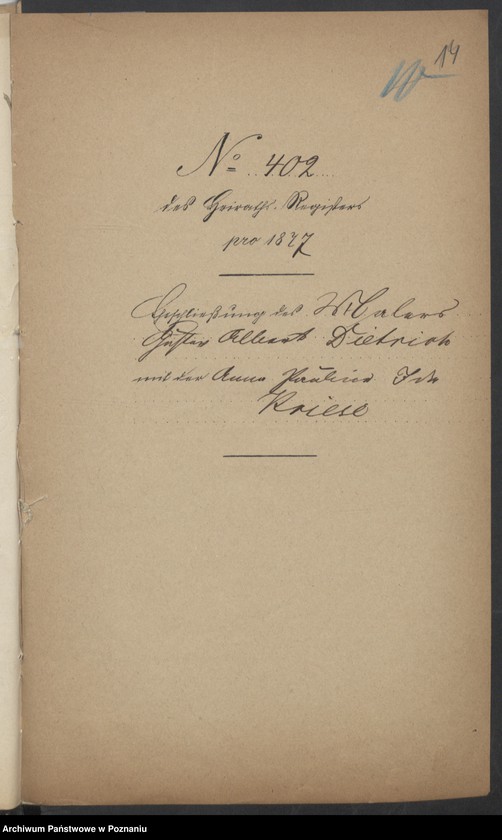 14
No. 402
des Heiraths-Registers
pro 1877
Eheschließung des Malers
Gustav Albert Dietrich
mit der Anna Pauline Ida
Kriese
Archiwum Państwowe w Poznaniu